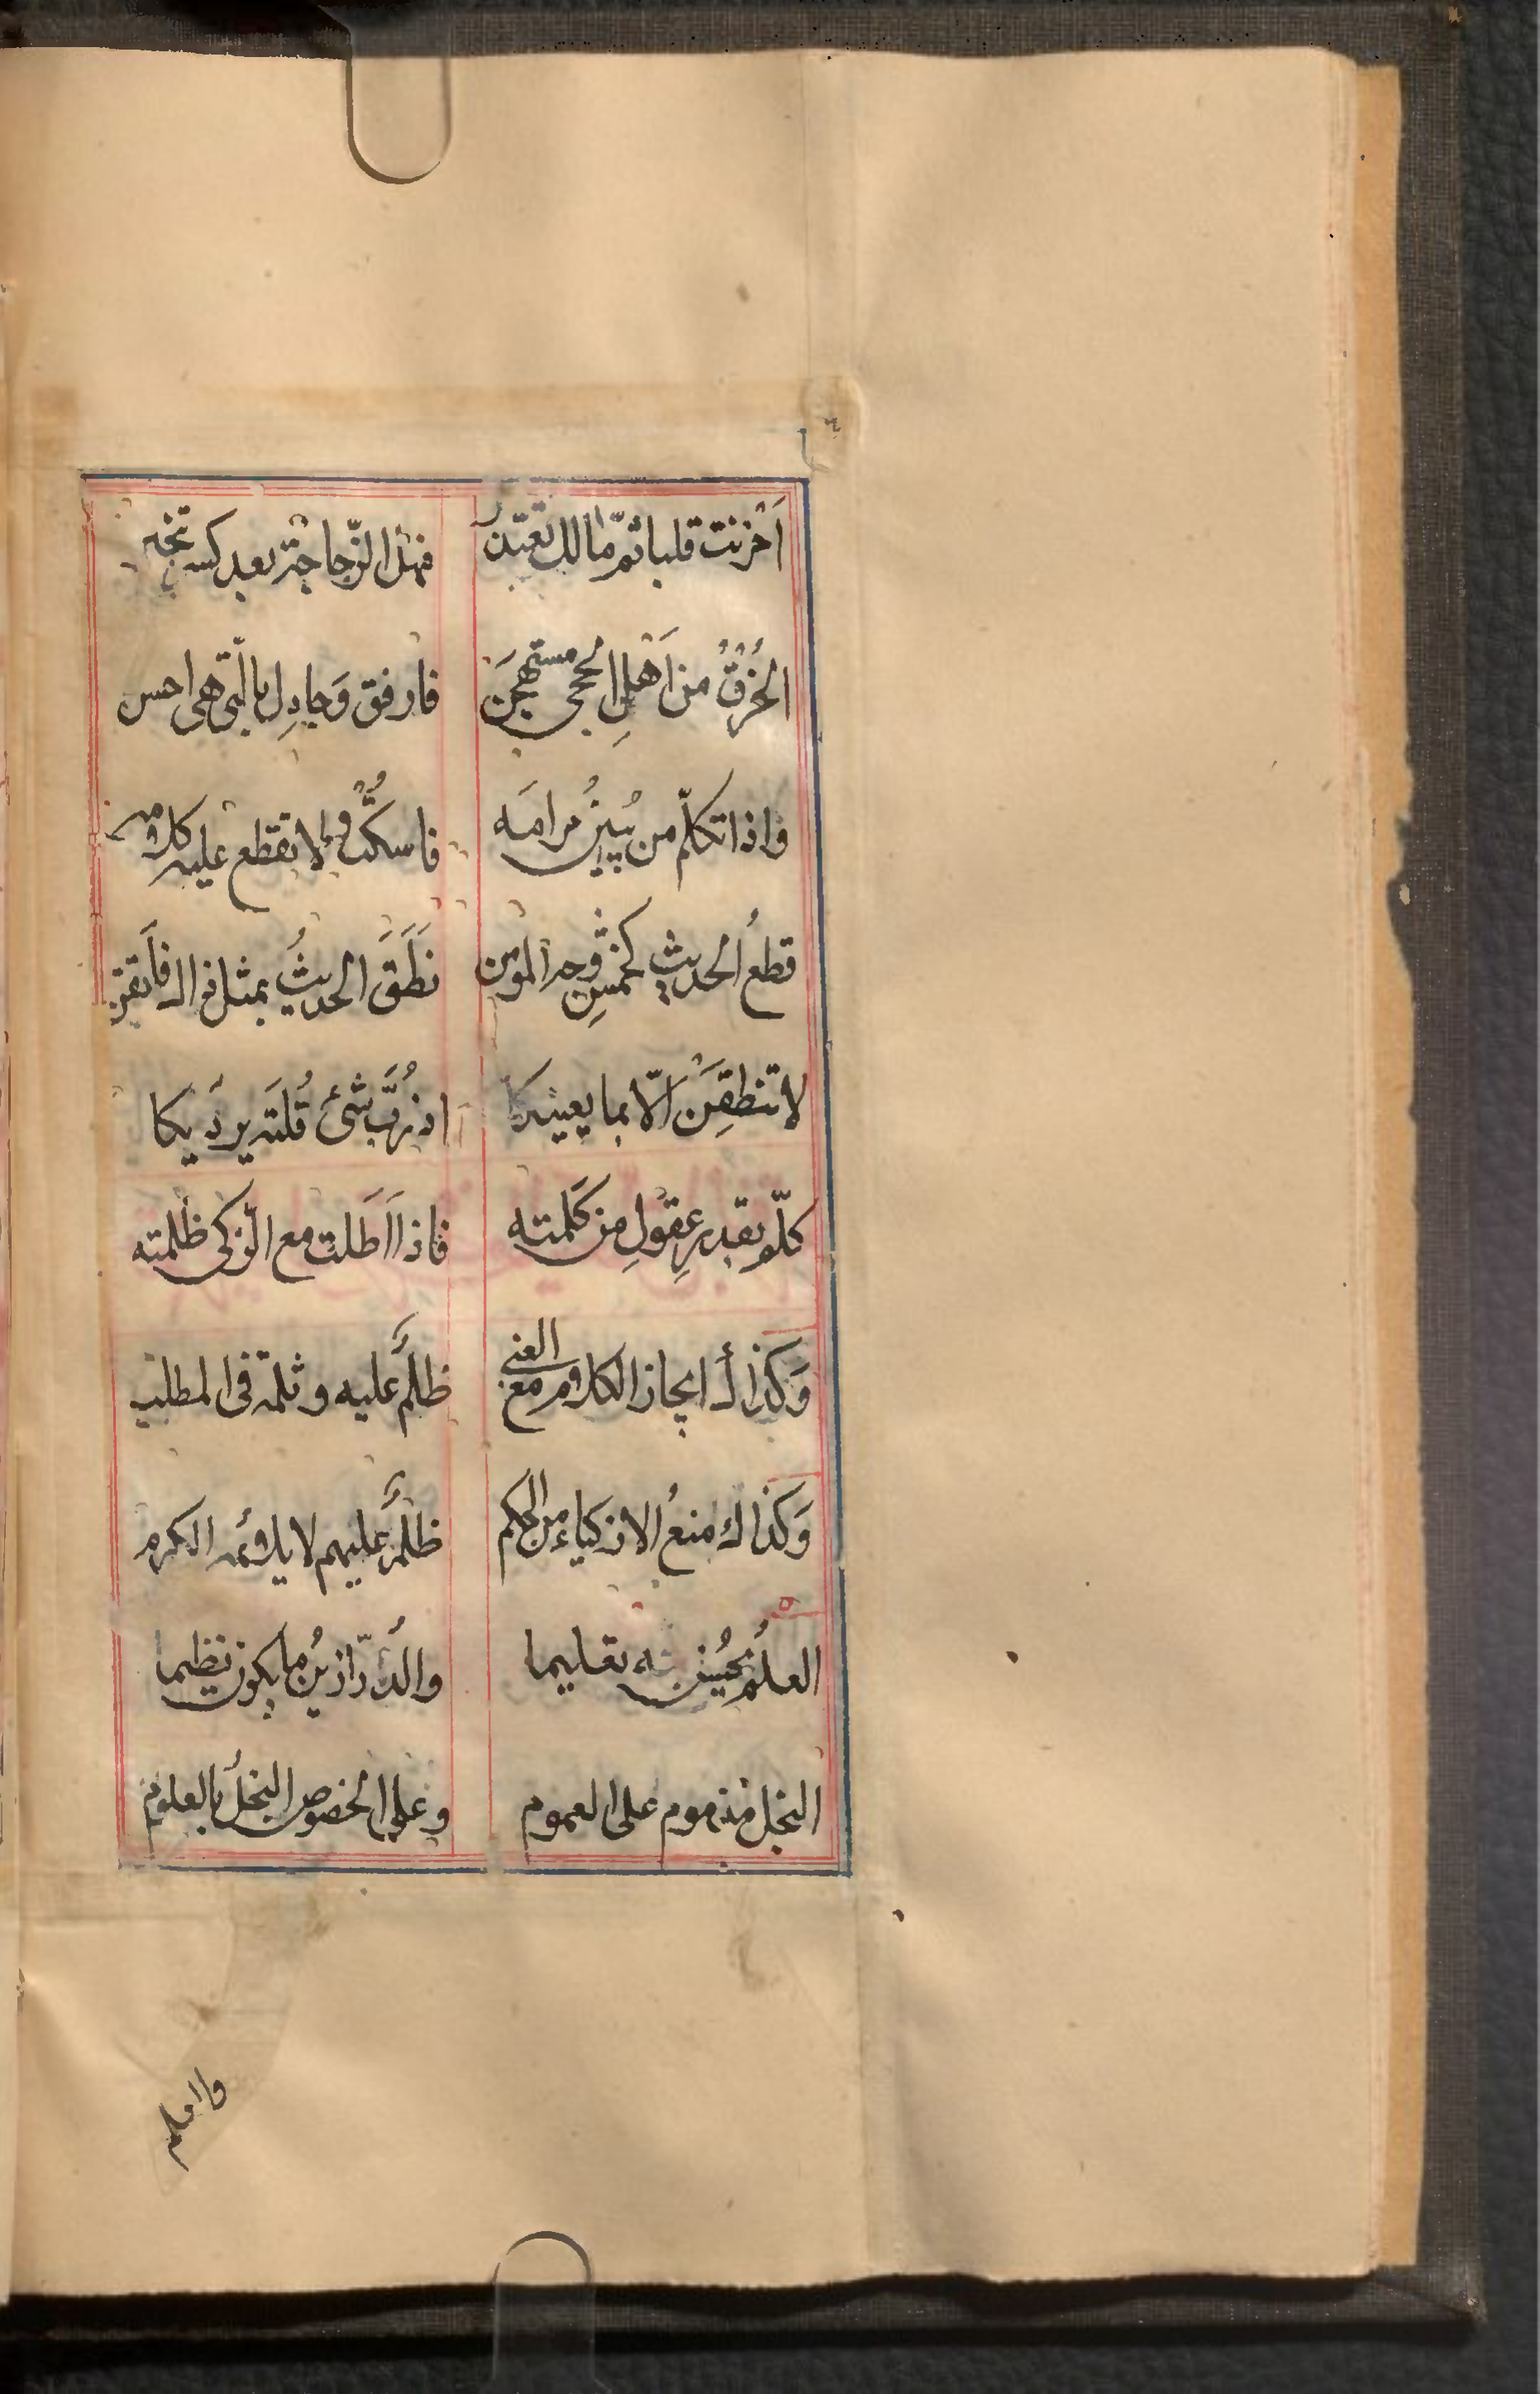 أحزنت قلبا ثم مالك تعتذر فهل الزجاجة بعد كسر تنجبر
الخُرْقُ من أَهلِ الحجى مستهجَن فارفق وَجادِل بالّتى هى احسن
واذا تكلّم من يُبينُ مرامَه فاسكتْ ولا تقطع عليه كلامه
قطعُ الحديثِ كخمشِ وجه المؤمن نَطَقَ الحديثُ بمثل ذاك فأيقن
لا تنطقِنَّ الّا بما يعنيكا اذ رُبَّ شىء قُلتَه يرديكا
كلّم بقدرِ عقولِ من كَلّمته فاذا اَطَلت مع الذكى ظلمته
وَكذاك ايجاز الكلام مع الغبى ظلمٌ عليه وثلمة فى المطلب
وَكذاك منعُ الاذكياء من الحكم ظلمٌ عليهم لا يلائمه الكرم
العلمُ يحسن تعليما والدُّرّ ازينُ ما يكون نظيما
البخل مذموم على العموم وعلى الخصوص البخلُ بالعلوم